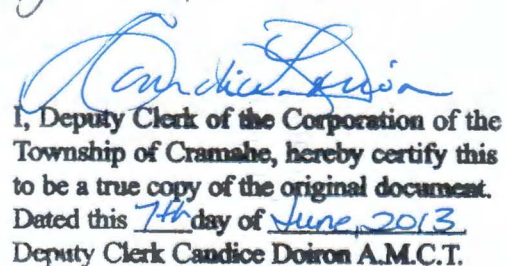 Candice Doiron
I, Deputy Clerk of the Corporation of the
Township of Cramahe, hereby certify this
to be a true copy of the original document.
Dated this 7th day of June, 2013
Deputy Clerk Candice Doiron A.M.C.T.